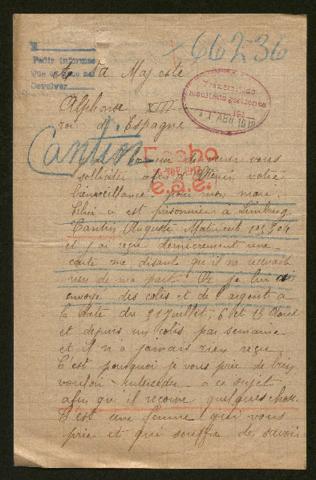 66236
a sa Majesté
Pedir informes
Devolver
Alphonse XIII
roi d'Espagne
Cantin
de venir vous
solliciter afin d'obtenir votre
bienveillance pour mon mari
Celui ci est prisonnier à Limburg
Cantin Auguste Matricule
et j'ai reçu dernièrement une
carte me disant qu'il ne recevait
rien de ma part. Or je lui ai
envoyé des colis et de l'argent à
la date des 31 Juillet, 6 et 15 Aout
et depuis un colis par semaine
et il n'a jamais rien reçu
C'est pourquoi je vous prie de bien
vouloir intercéder à ce sujet
afin qu'il reçoive quelques chose
C'est une femme qui vous
prie et qui souffre de savoir